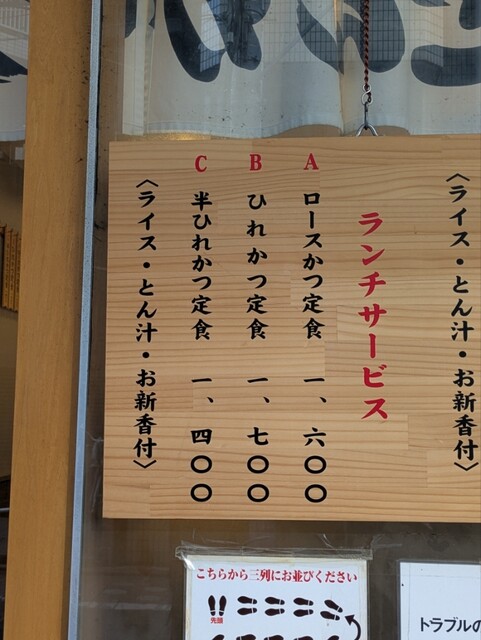 〈ライス・とん汁・お新香付〉
ランチサービス
A ロースかつ定食 一、六〇〇
B ひれかつ定食 一、七〇〇
C 半ひれかつ定食 一、四〇〇
〈ライス・とん汁・お新香付〉
こちらから三列にお並びください
先頭
トラブルの